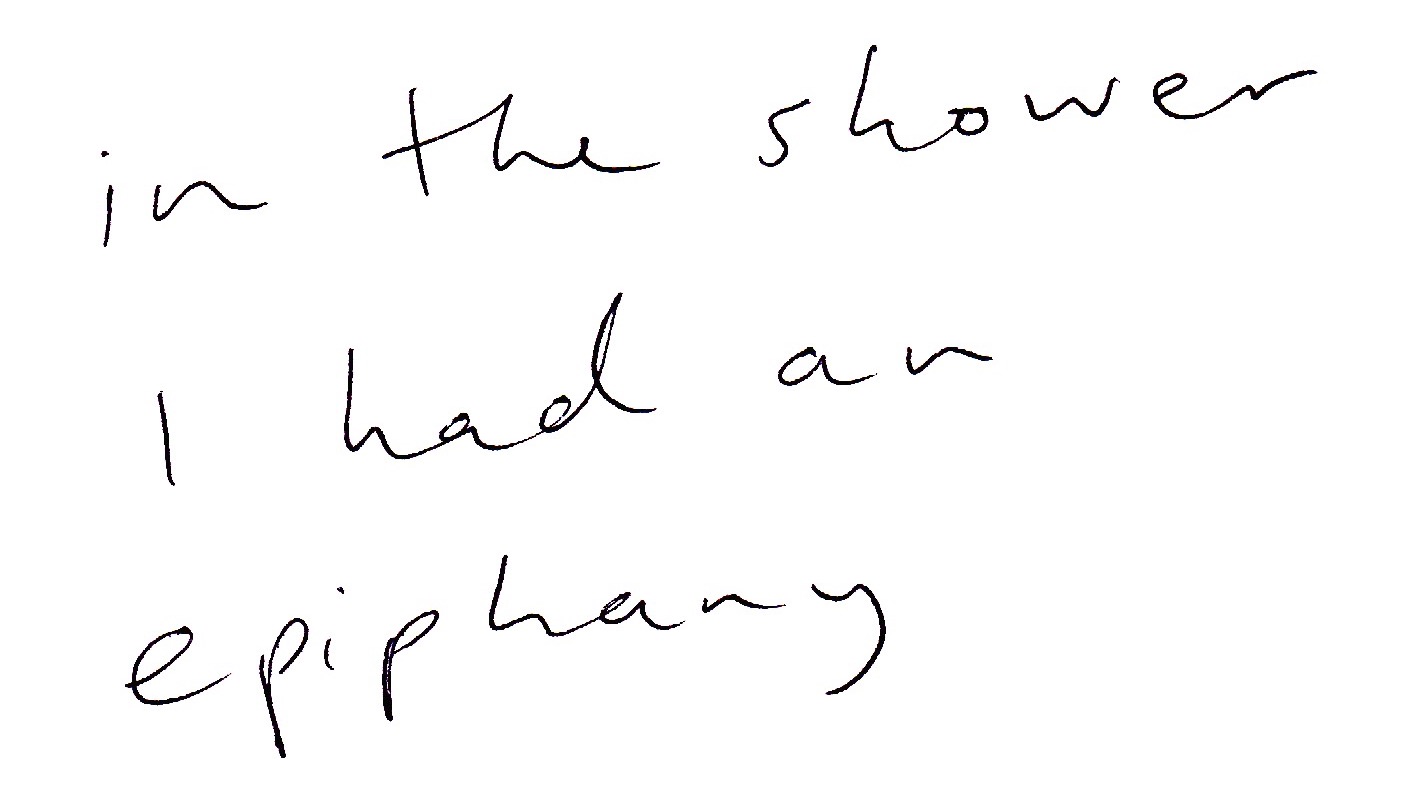 in the shower
I had an
epiphany